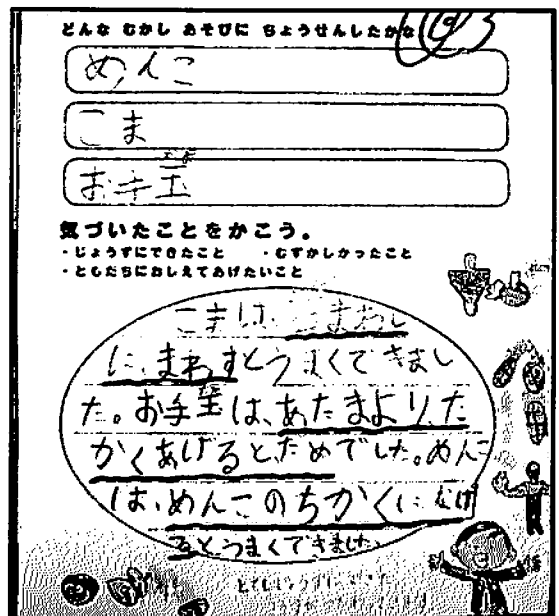 どんな むかし あそびに ちょうせんしたかな
めんこ
こま
お手玉
気づいたことをかこう。
・じょうずにできたこと ・むずかしかったこと
・ともだちにおしえてあげたいこと
こまは、
に、まわすとうまくできまし
た。お手玉は、あたまより、た
かくあげると、だめでした。めんこ
は、めんこのちかくになげ
るとうまくできました。